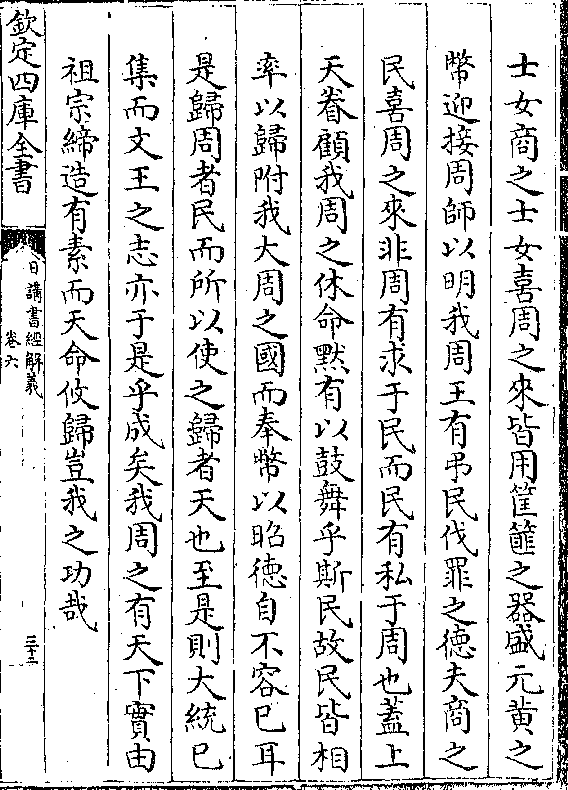 士女商之士女喜周之來皆用筐篚之器盛元黃之
幣迎接周師以明我周王有弔民伐罪之德夫商之
民喜周之來非周有求于民而民有私于周也蓋上
天眷顧我周之休命默有以鼓舞乎斯民故民皆相
率以歸附我大周之國而奉幣以昭德自不容已耳
是歸周者民而所以使之歸者天也至是則大統已
集而文王之志亦于是乎成矣我周之有天下實由
祖宗締造有素而天命攸歸豈我之功哉
欽定四庫全書
日講書經解義
卷六
三十三